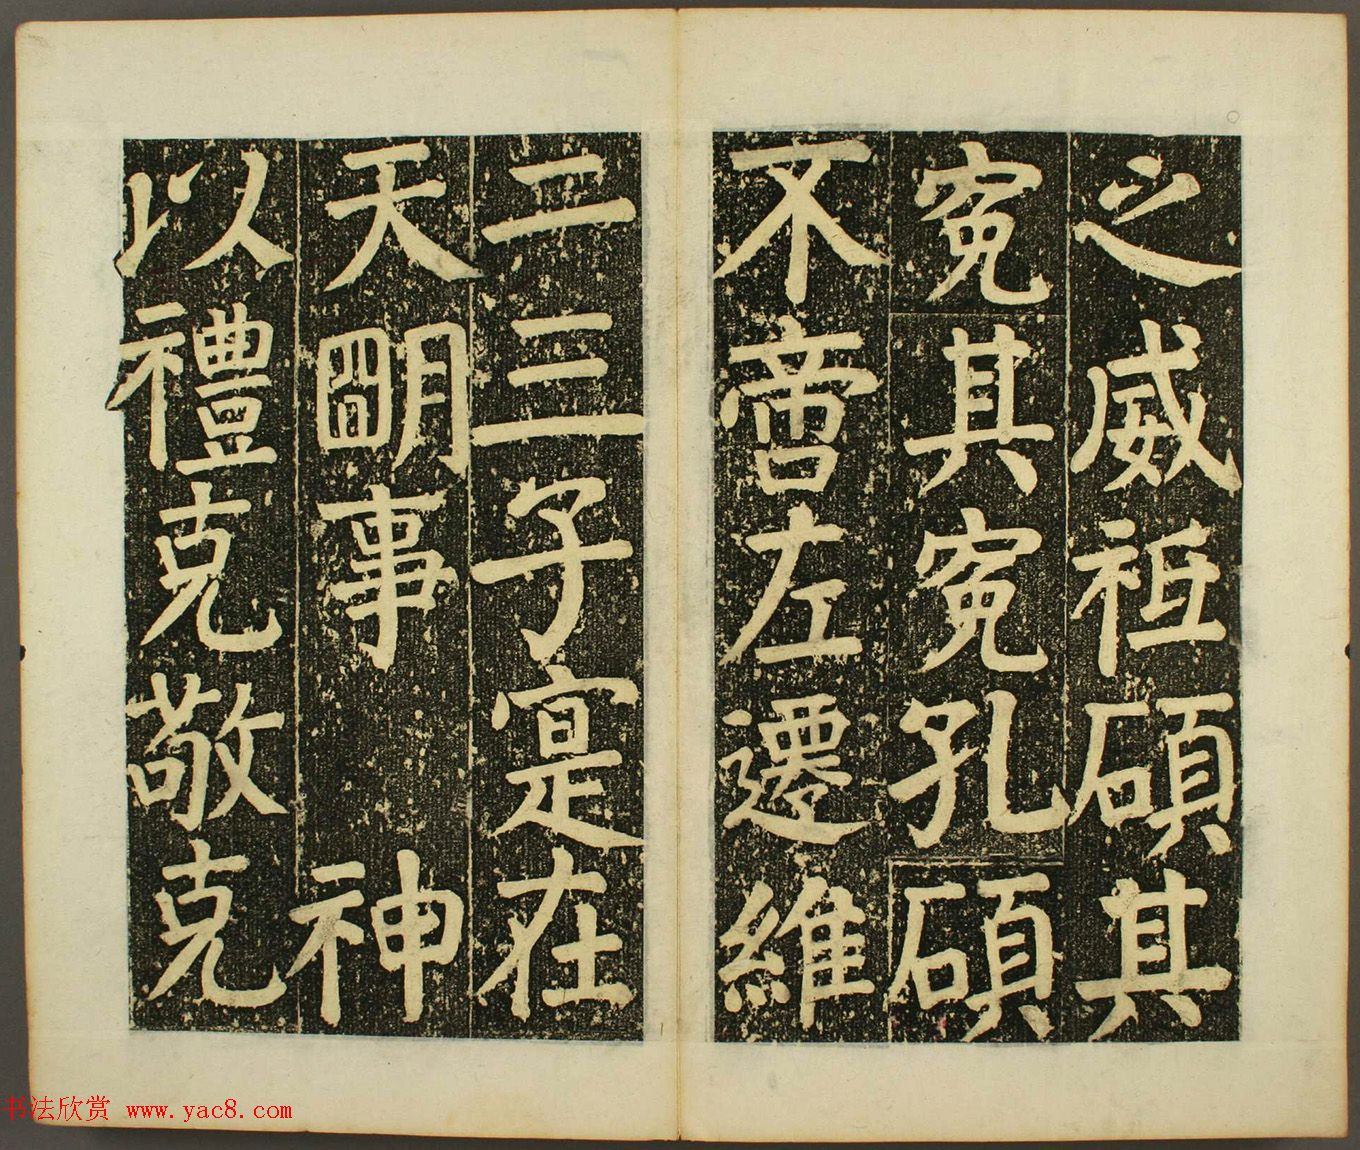 之威祖碩其
寃其寃孔碩
不啻左遷維
二三子寔在
天朙事神
以禮克敬克
书法欣赏 www.yac8.com